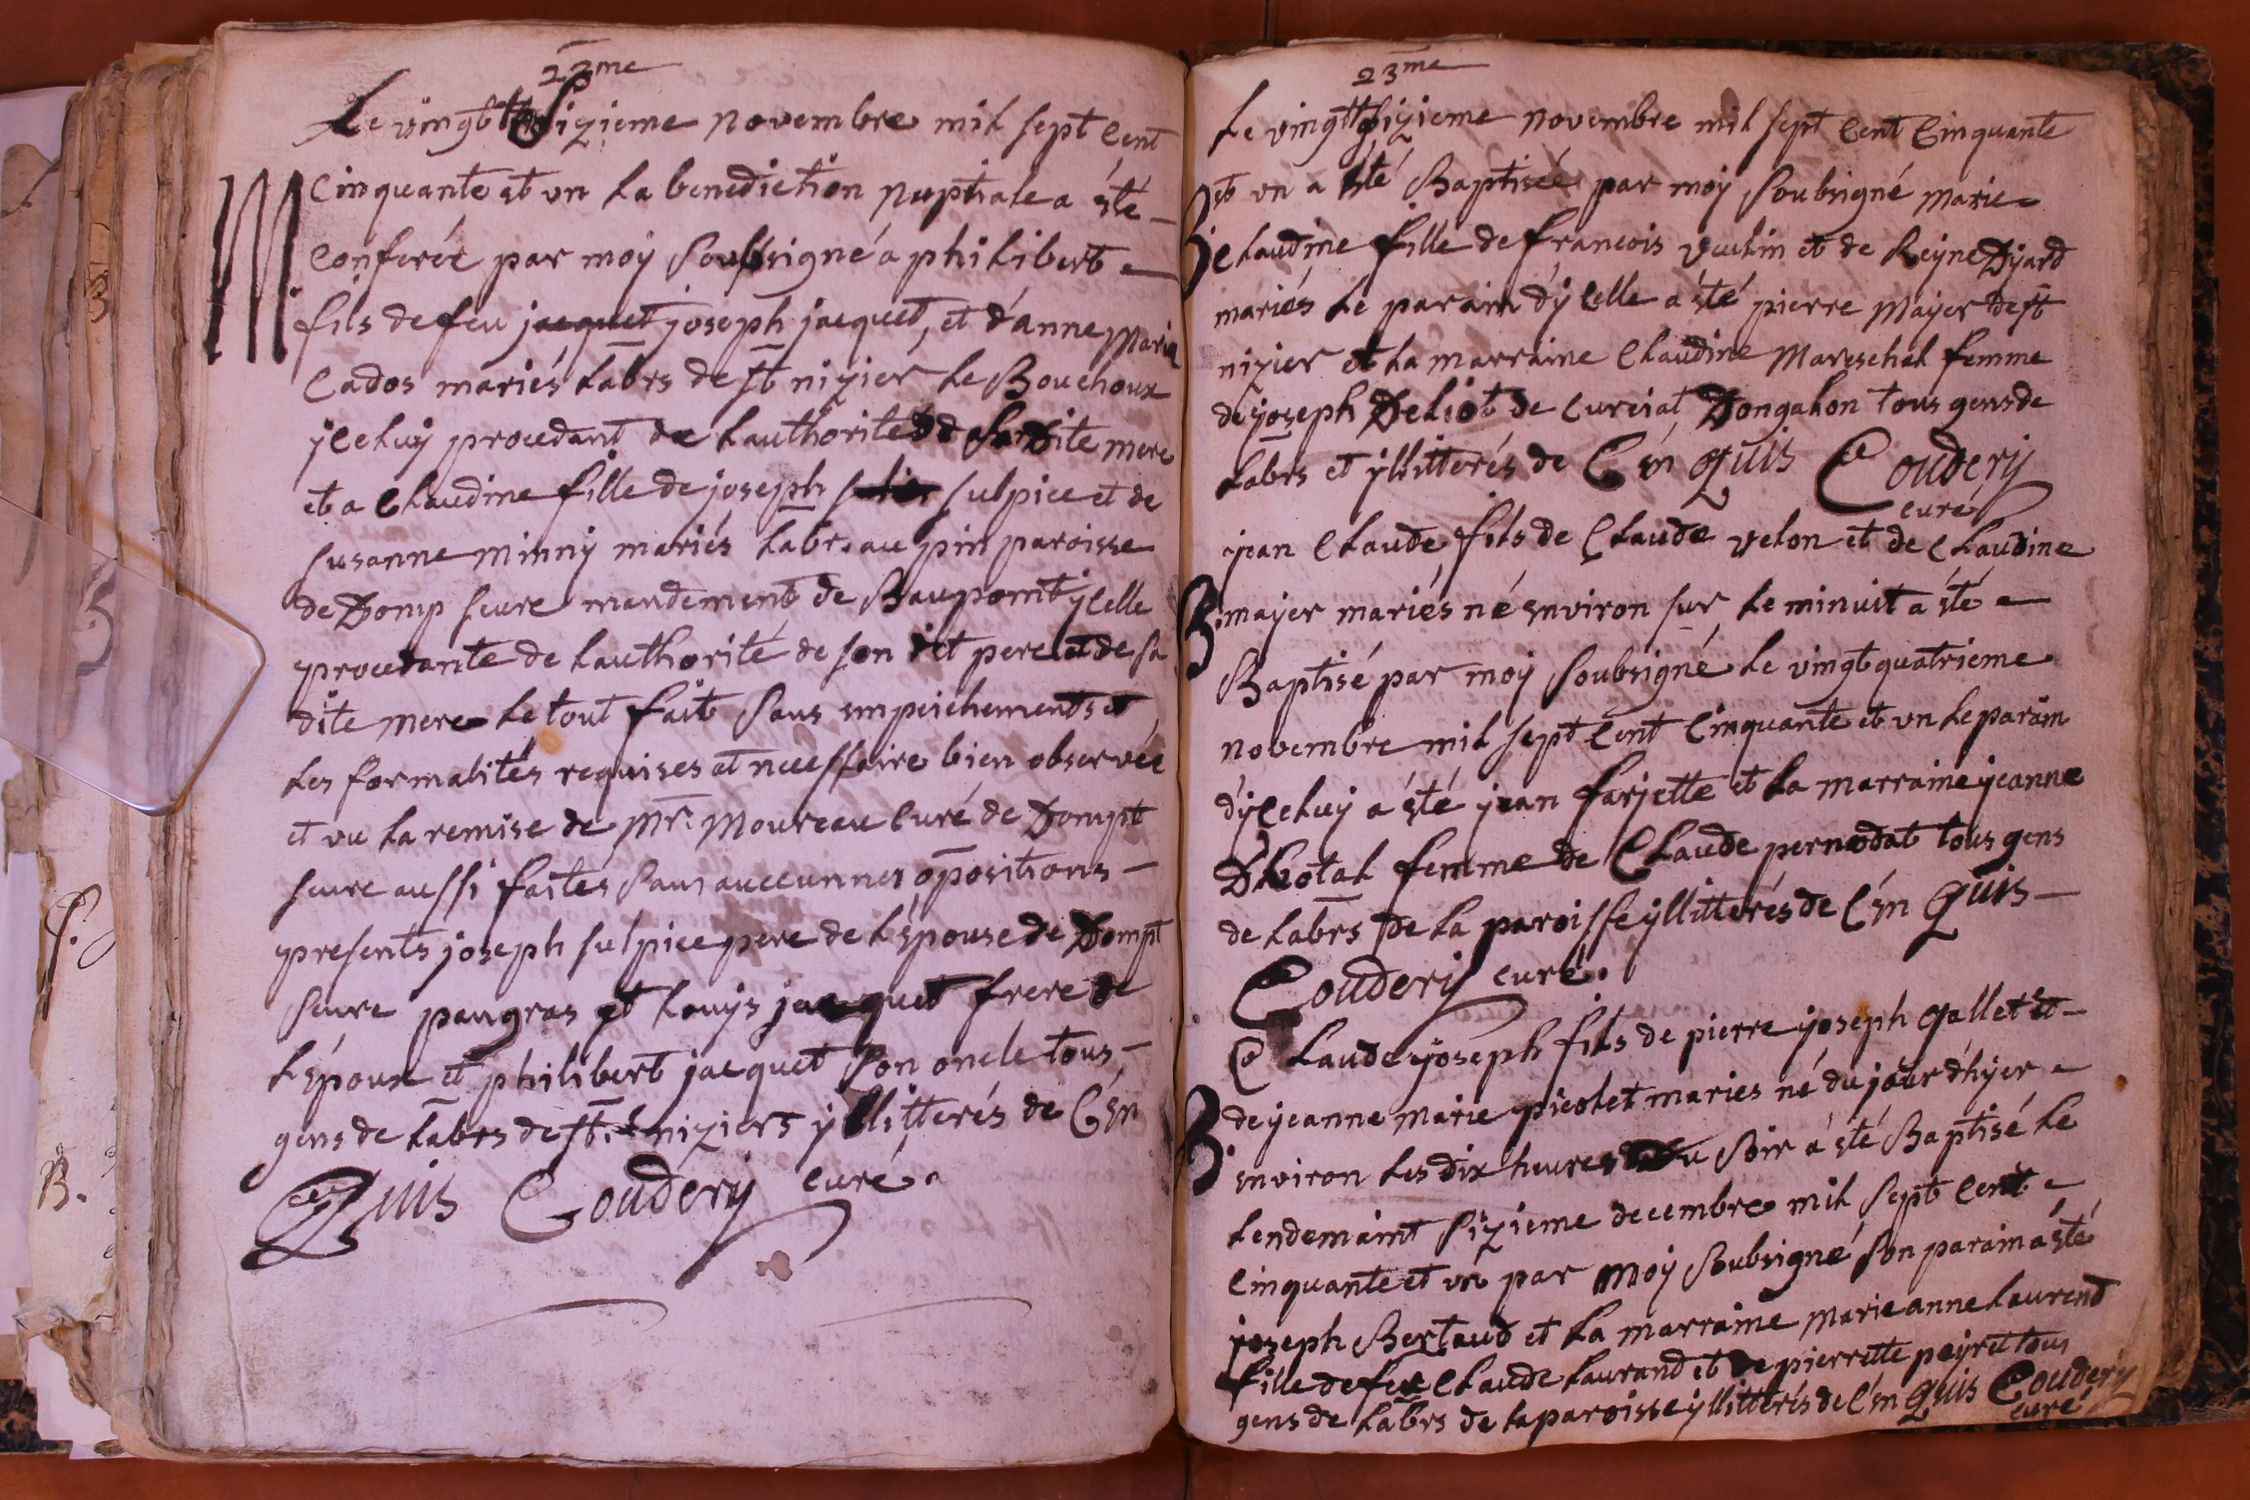 23me
Le vingt Sizieme novembre mil sept Cent
M Cinquante et vn La benediction nuptiale a été
Conferée par moy Soubsigné a philibert
fils de feu jacquet joseph jacquet, et d'anne Marie
Cados mariés Labrs de st nizier Le Bouchoux
yCeluy procedant de Lauthorité de Sa Dite mere
et a Claudine fille de joseph sulpice et de
susanne Minny mariés Labrs au pin paroisse
de Domp seure mandement de Baupont yCelle
procedante de Lauthorité de son dit pere et de sa
dite Mere Le tout fait Sans empeichements et
Les formalités requises et necessaire bien observée
et vu La remise de Mr. Moureau Curé de Dompt
seure aussi faites Sans auccunnes opositions
presents joseph sulpice pere de L'épouse de Dompt
Seure pangras et Louys jacquet frere de
L'époux et philibert jacquet Son oncle tous
gens de Labrs de st. niziers yllitterés de C'en
Quis Coudery Curé.
B.
23me
Le vingt Sizieme novembre mil sept Cent Cinquante
et vn a été Baptisée par moy Soubsigné Marie
B Claudine fille de francois Vuelin et de Reyne Dyard
mariés Le parain d'yCelle a été pierre Mayer de st
nizier et La marraine Claudine Mareschal femme
de joseph Deliot de Curciat Dongalon tous gens de
Labrs et yllitterés de C'en Quis Coudery
curé
jean Claude fils de Claude velon et de Claudine
B. mayer mariés né environ sur Le minuit a été
Baptisé par moy Soubsigné Le vingt quatrieme
novembre mil sept Cent Cinquante et vn Le parain
d'yCeluy a été jean farjette et La marraine jeanne
Dhotal femme de Claude pernodat tous gens
de Labrs de La paroisse yllitterés de C'en Quis
Coudery curé.
Claude joseph fils de pierre joseph Gallet et
B. de jeanne Marie picolet maries né du jour d'hyer
environ Les dix heures du Soir a été Baptisé Le
Lendemaint Sizieme decembre mil Sept Cent
Cinquante et vn par moy Soubsigné Son parain a été
joseph Bertaud et La marraine Marie anne Laurend
fille de feu Claude Laurand et de pierrette peyret tous
gens de Labrs de La paroisse yllitterés de C'en Quis Coudery
curé